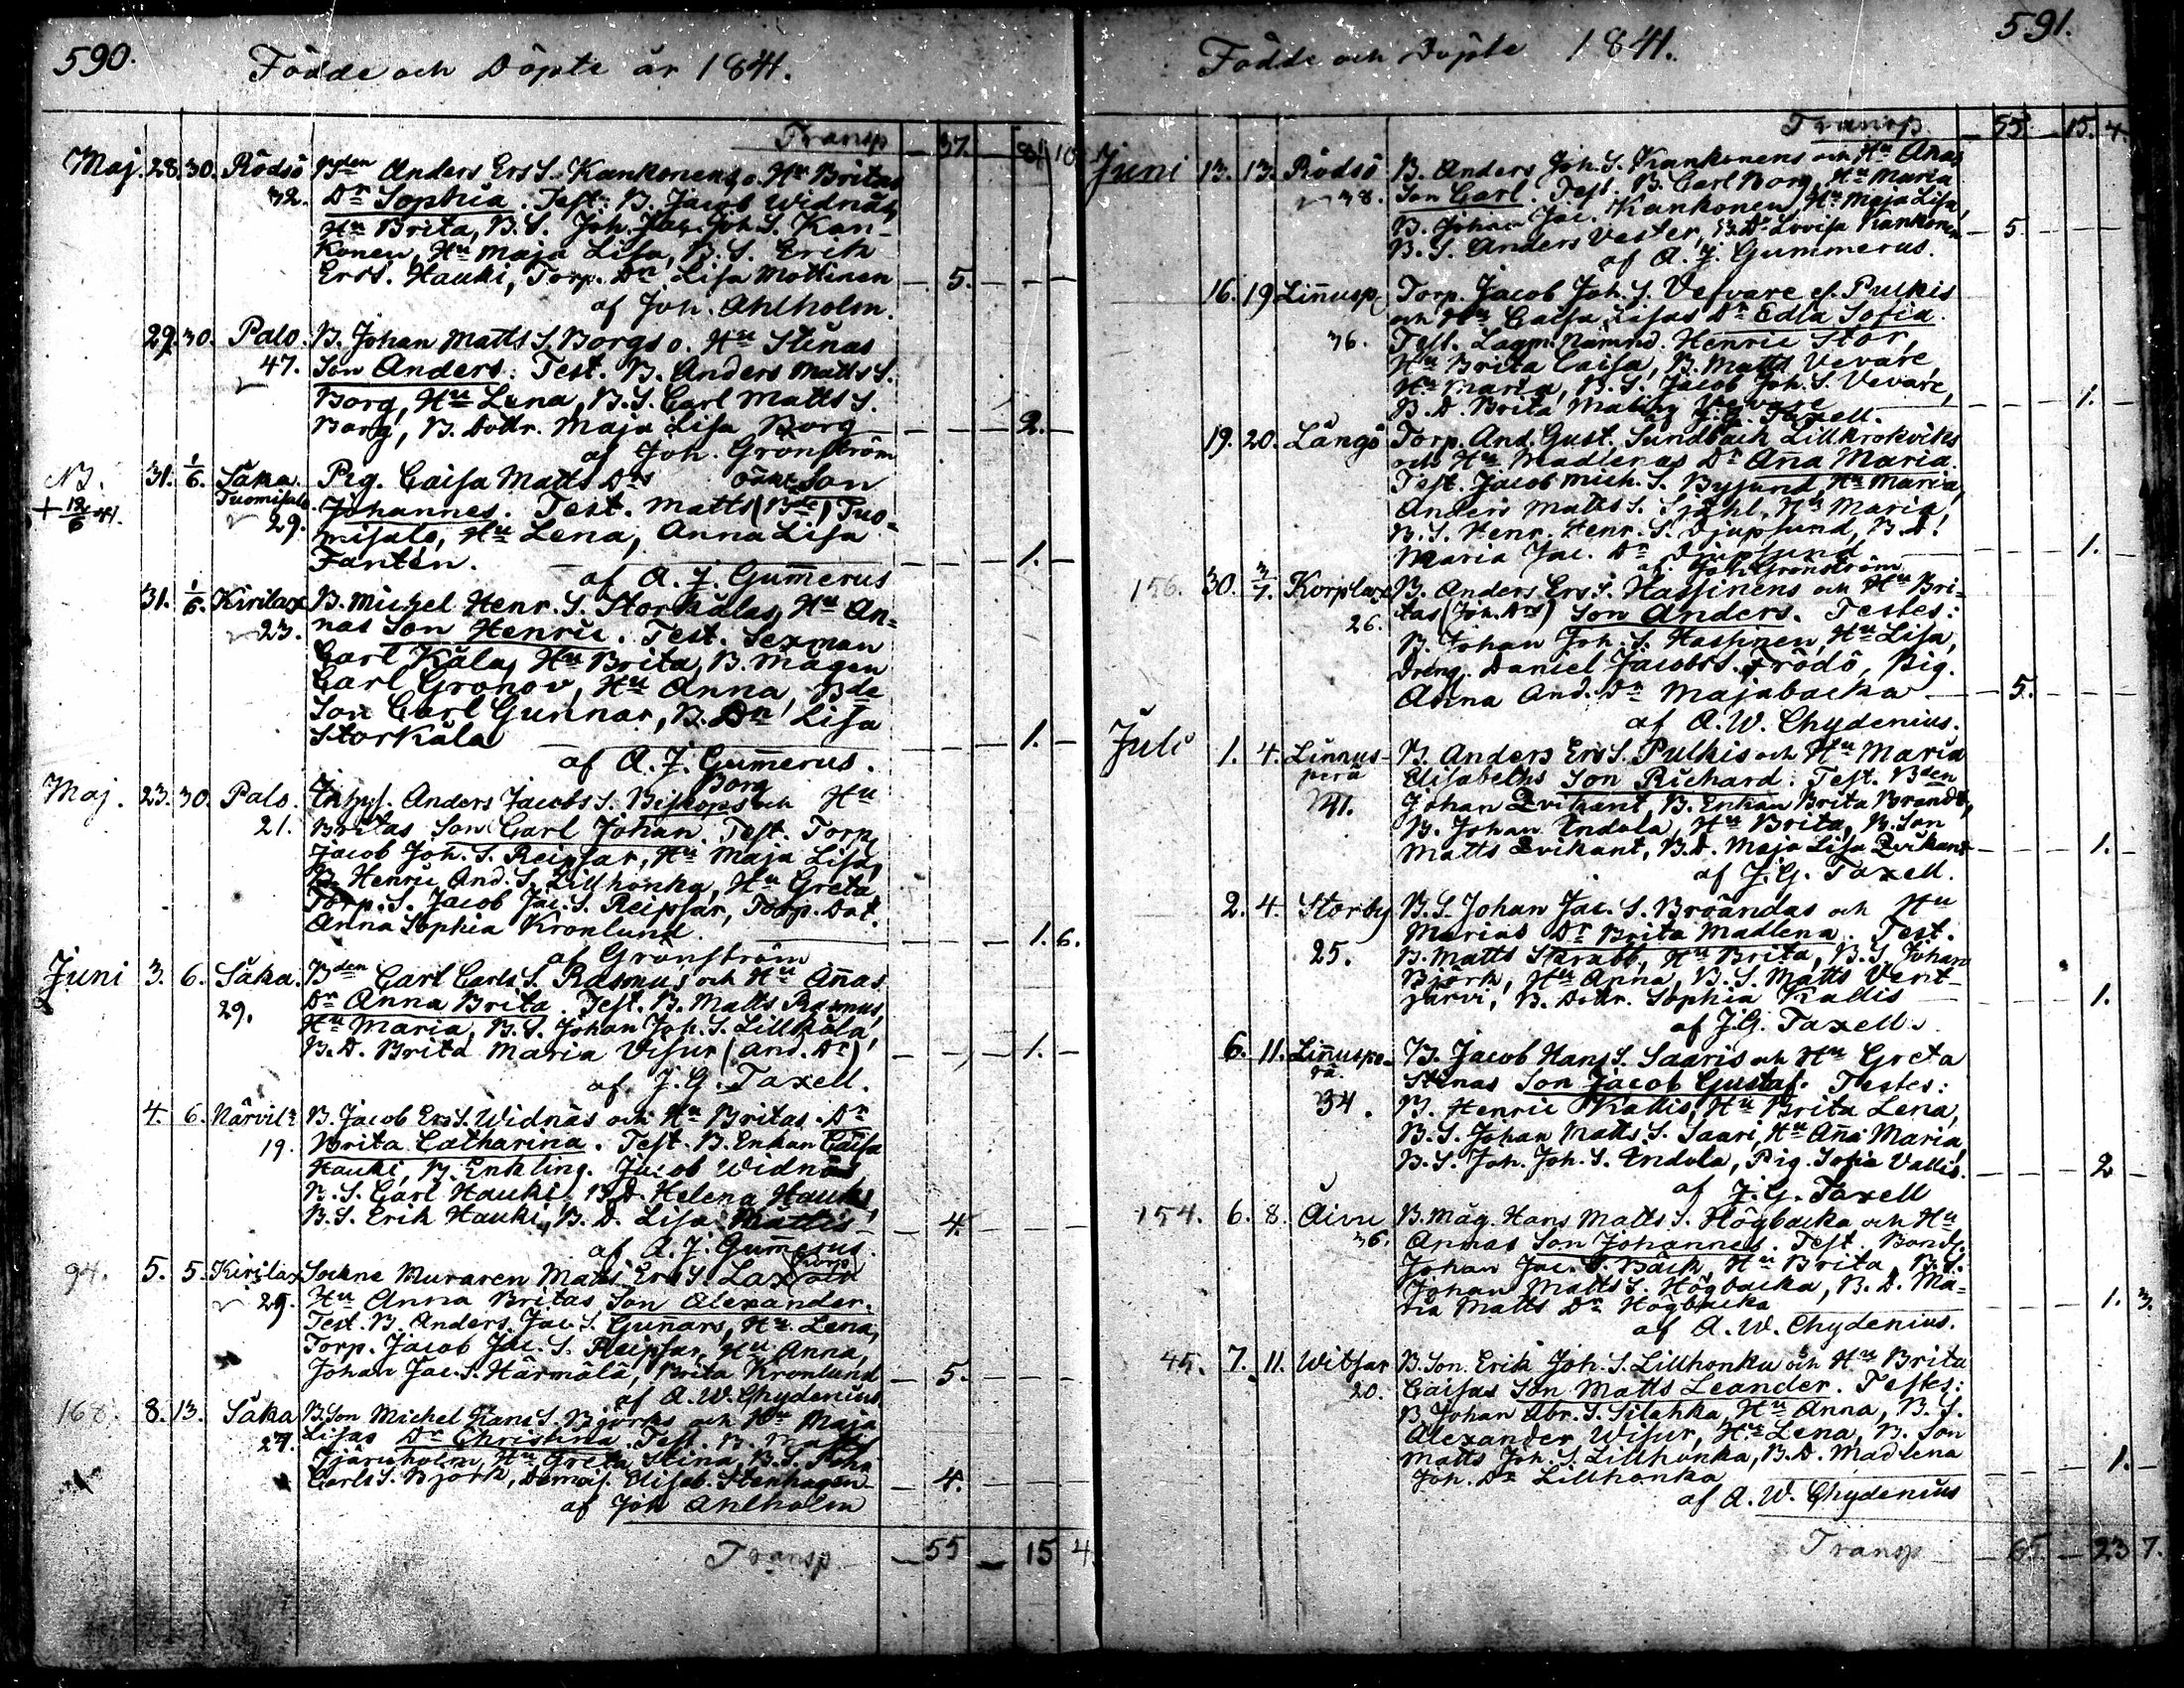 590.
Födde och Döpte år 1841.
Transp 37. 8 10
Maj. 28. 30. Rödsö Bden Anders Ers S. Kankonens o. Hu Britas
32. Dr Sophia. Test: B. Jacob Widnäs,
Hu Brita, B. S. Joh. Joh. S. Kan-
konen, Hu Maja Lisa, B. S. Erik
Ers S. Hauki, Torp. Dr Lisa Mottinen 5.
af Joh. Ahlholm.
29. 30. Palo. B. Johan Matts S. Borgs o. Hu Stinas
47. Son Anders. Test. B. Anders Matts S.
Borg, Hu Lena, B. S. Carl Matts S.
Borg, B. Dottr. Maja Lisa Borg 2.
af Joh. Grönström
NB. 31. 1/6. Såka. Pig. Caisa Matts Drs oäkt Son
+ 12/6 41. Tuomisalo Johannes. Test. Matts (Bde) Tuo-
29. misalo, Hu Lena, Anna Lisa
Fanten. 1.
af A. J. Gum̄erus
31. 1/6. Kirilax B. Michel Henr. S. Storkålas, Hu An-
23. nas Son Henric. Test. Sexman
Carl Kåla, Hu Brita, B. Mågen
Carl Gronov, Hu Anna, Bde
Son Carl Gunnar, B. Dr Lisa
Storkåla 1.
af A. J. Gum̄erus.
Borg
Maj. 23. 30. Palo. Inhys. Anders Jacobs S. Biskops och Hu
21. Britas Son Carl Johan. Test. Torp.
Jacob Joh. S. Reipsar, Hu Maja Lisa,
B. Henric And. S. Lillhonka, Hu Greta
Torp. S. Jacob Jac. S. Reipsar, Torp. Dot.
Anna Sophia Kronlund. 1. 6.
af Grönström
Juni 3. 6. Såka. Bden Carl Carls S. Rasmus och Hu An̄as
29. Dr Anna Brita. Test. B. Matts Rasmus,
Hu Maria, B. S. Johan Joh. S. Lillkåla,
B. D. Brita Maria Visur (And. Dr) 1.
af J. G. Taxell.
4. 6. Närvilä B. Jacob Ers S. Widnäs och Hu Britas Dr
19. Brita Catharina. Test. B. Enkan Caisa
Hauki, B. Enkling. Jacob Widnäs
B. S. Carl Hauki, B. D. Helena Hauki,
B. S. Erik Hauki, B. D. Lisa Mattis 4.
af A. J. Gum̄erus.
94. 5. 5. Kirilax Sockne Muraren Matts Ers S. Lax
29. Hu Anna Britas Son Alexander.
Test. B. Anders Jac. S. Gun̄ars, Hu Lena,
Torp. Jacob Jac. S. Reipsar, Hu Anna,
Johan Jac. S. Härmälä, Brita Kronlund 5.
af A. W. Chydenius
168. 8. 13. Såka B. Son Michel Hans S. Björks och Hu Maja
27. Lisas Dr Christina. Test. B. Matts
Tjäruholm, Hu Greta Stina, B. S. John
Carls S. Björk, Demois. Elisab. Stenhagen 4.
af Joh Ahlholm
Transp 55 15 4
591.
Födde och Döpte 1841.
Transp 55 15. 4.
Juni 13. 13. Rödsö B. Anders Joh. S. Kankonens och Hu An̄as
38. Son Carl. Test. B. Carl Borg, Hu Maria
B. Johan Jac. Kankonen, Hu Maja Lisa,
B. S. Anders Vester, B. D. Lovisa Kankonen 5.
af A. J. Gummerus.
16. 19 Lin̄usp. Torp. Jacob Joh. S. Vefvare el. Pulkis
och Hu Caisa Lisas Dr Edla Sofia.
36. Test. Lagm. Nämnd. Henric Stor,
Hu Brita Caisa, B. Matts Vevare,
Hu Maria, B. S. Jacob Joh. S. Vevare,
B. D. Brita Vevare 1.
J. G. Taxell.
19. 20. Långö Torp. And. Gust. Sundbäck Lillkrokviks
och Hu Madlenas Dr An̄a Maria.
Test. Jacob Mich. S. Bysund, Hu Maria,
Anders Matts S. Sjöhl, Hu Maria,
B. S. Henr. Henr. S. Djupsund, B. D.
Maria Jac. Dr Djupsund 1.
af Joh. Grönström
156. 30. 3/7. Korplax B. Anders Ers S. Hassinens och Hu Bri-
26. tas (Joh. Drs) Son Anders. Testes:
B. Johan Joh. S. Hassinen, Hu Lisa,
Dreng. Daniel Jacobs S. Frödö, Pig.
Anna And. Dr Majabacka 5.
af A. W. Chydenius.
Juli 1. 4. Linnus- B. Anders Ers S. Pulkis och Hu Maria
perä Elisabeths Son Richard. Test. Bden
41. Johan Qvikant, B. Enkan Brita Brandt,
B. Johan Indola, Hu Brita, B. Son
Matts Qvikant, B. D. Maja Lisa Qvikant 1.
af J. G. Taxell.
2. 4. Storby B. S. Johan Jac. S. Broändas och Hu
Marias Dr Brita Madlena. Test.
25. B. Matts Skrabb, Hu Brita, B. S. Johan
Björk, Hu Anna, B. S. Matts Vent-
järvi, B. Dottr. Sophia Kallis 1.
af J. G. Taxell.
6. 11. Lin̄uspe- B. Jacob Hans S. Saaris och Hu Greta
rä Stinas Son Jacob Gustaf. Testes:
34. B. Henric Kallis, Hu Brita Lena,
B. S. Johan Matts S. Saari, Hu An̄a Maria,
B. S. Joh. Joh. S. Indola, Pig. Sofia Vallis. 2
af J. G. Taxell
154. 6. 8. Åivu B. Måg. Hans Matts S. Högbacka och Hu
36. Annas Son Johannes. Test. Bond.
Johan Jac. S. Bäck, Hu Brita, B. S.
Johan Matts S. Högbacka, B. D. Ma-
ria Matts Dr Högbacka 1. 3.
af A. W. Chydenius.
45. 7. 11. Witsar B. Son. Erik Joh. S. Lillhonka och Hu Brita
20. Caisas Son Matts Leander. Testes:
B Johan Abr. S. Silahka, Hu Anna, B. S.
Alexander Wisur, Hu Lena, B. Son
Matts Joh. S. Lillhonka, B. D. Madlena
Joh. Dr Lillhonka 1.
af A. W. Chydenius
Transp 65. 23 7.